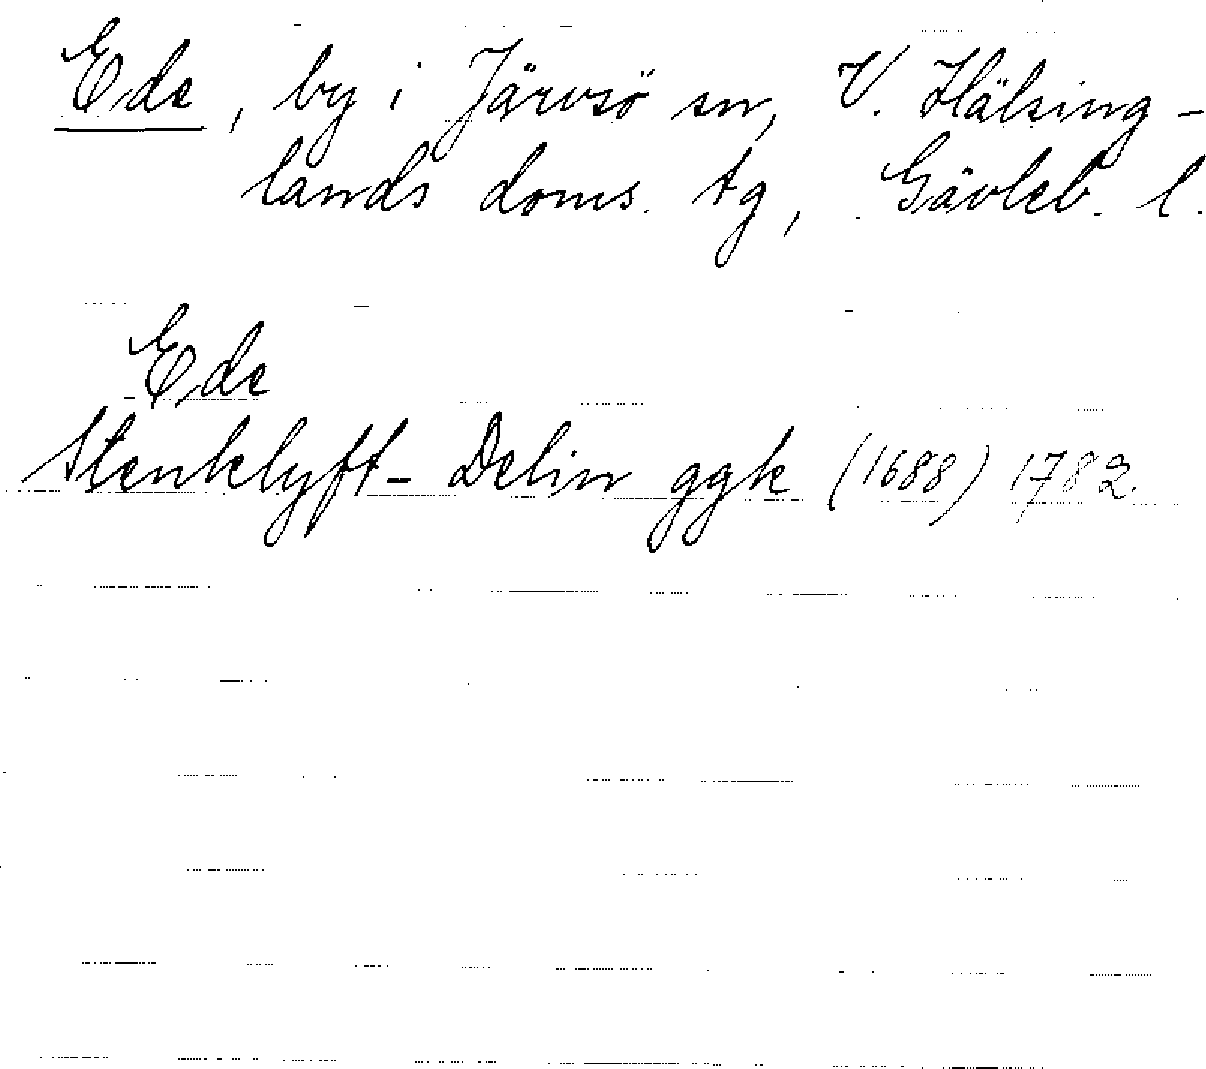 Ede, by i Järvsö sn, V. Hälsing-
lands doms. tg, Gävleb. l.
Ede
Stenklyft- Delin ggk (1688) 1782.